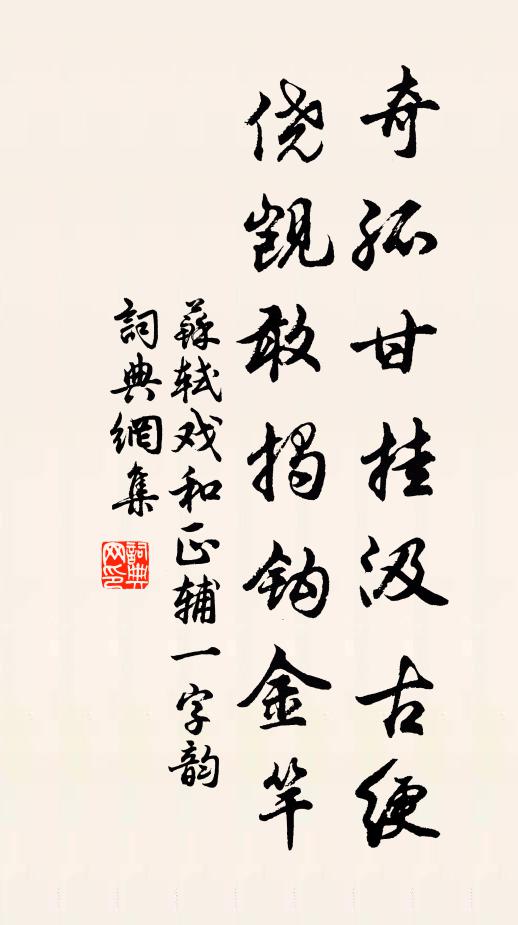 奇孤甘挂汲古绠
侥觊敢揭钩金竿
蘇轼戏和正辅一字韵
詞典網集
詞典网印